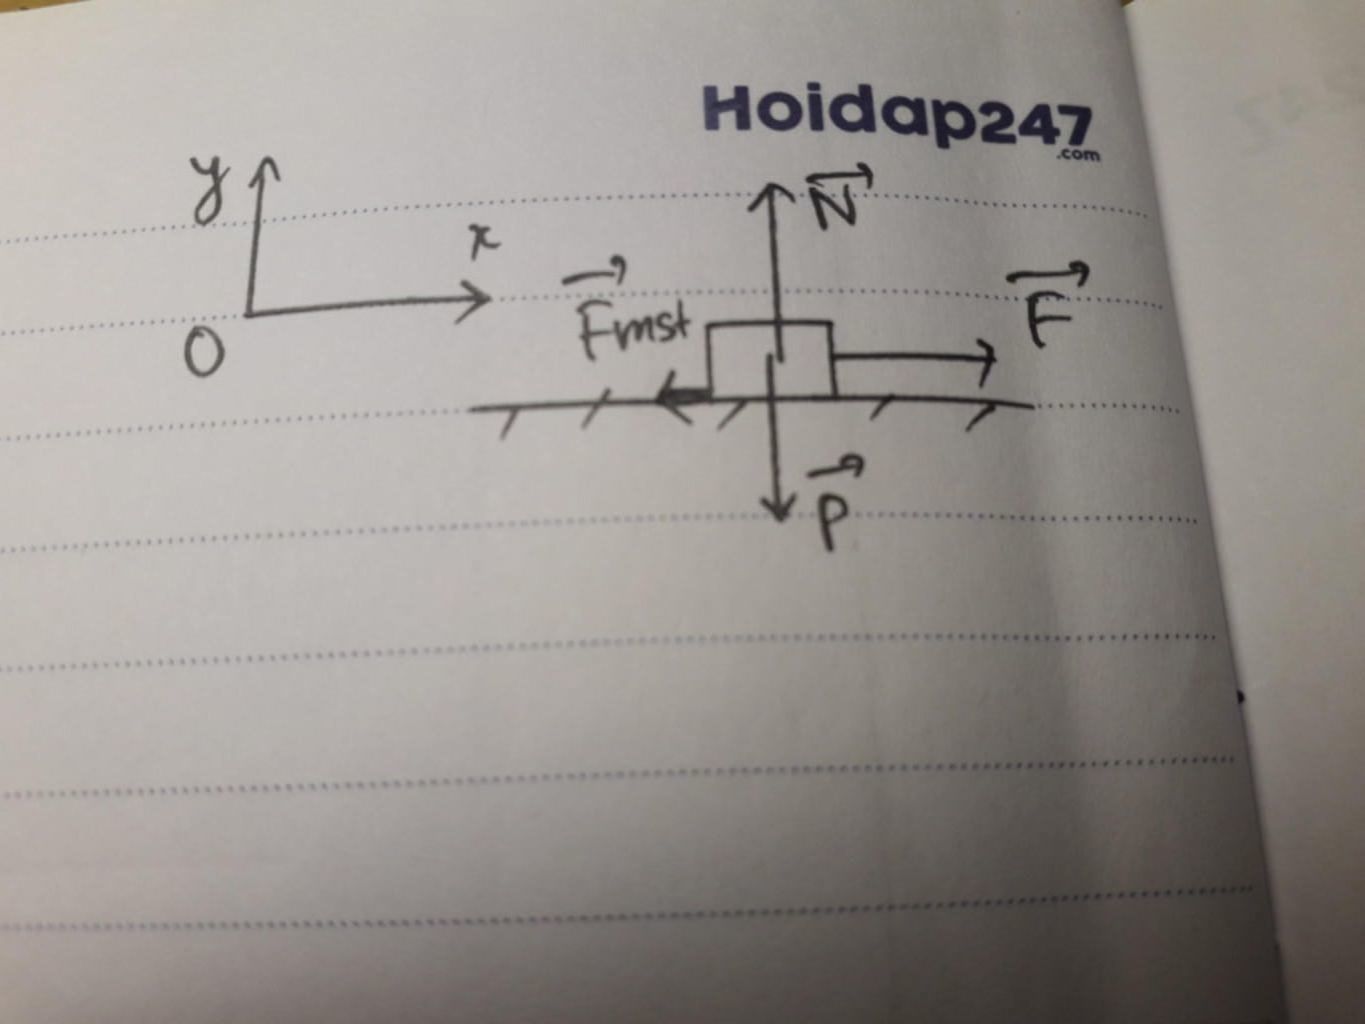 Hoidap247
.com
y
x
O
N
Fmst
F
P